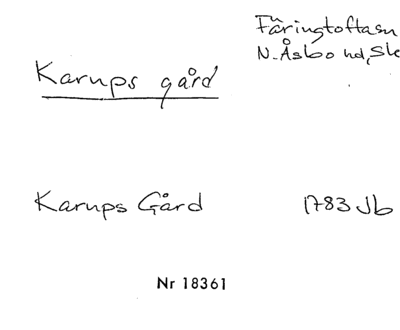 Färingtofta sn
N. Åsbo hd, Sk
Karups gård
Karups Gård 1783 Jb
Nr 18361